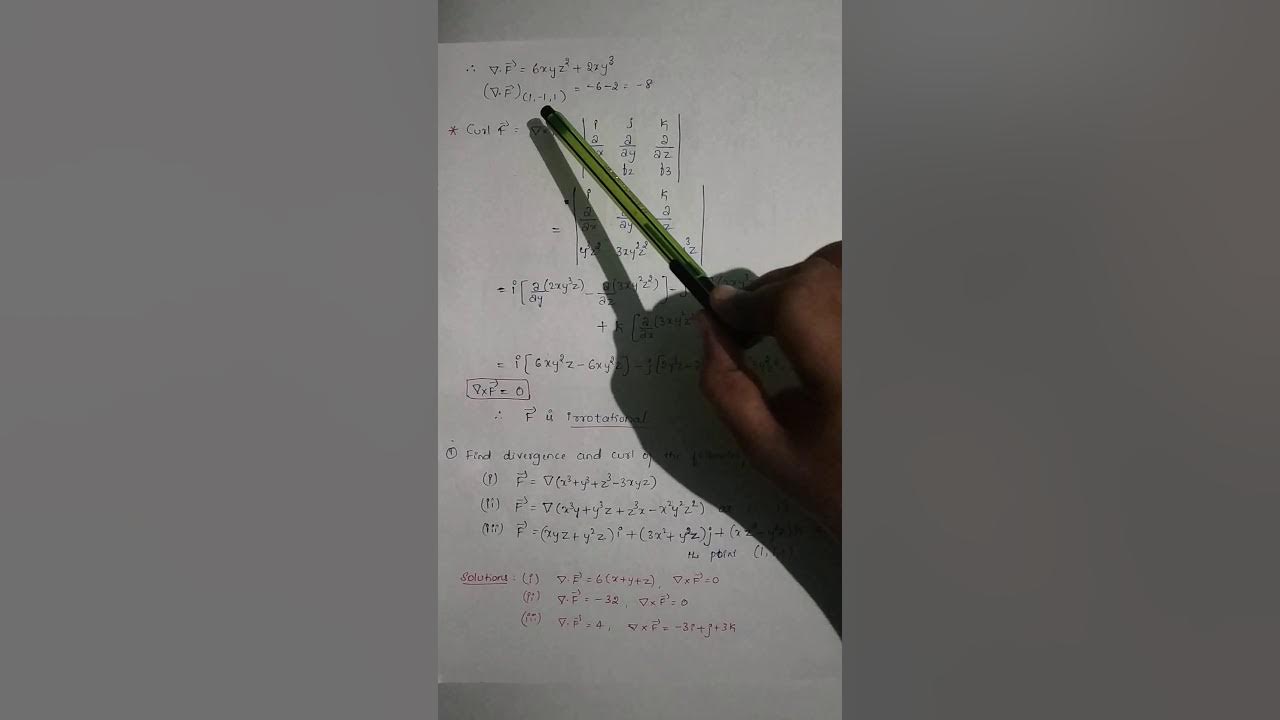 ∴ ∇·F⃗ = 6xyz² + 2xy³
(∇·F⃗)(1,-1,1) = -6-2 = -8
* Curl F⃗ = ∇ | i j k
∂/∂x ∂/∂y ∂/∂z
f2 f3 |
= | i k
∂/∂x ∂/∂y ∂/∂z
y³z² 3xy²z² ³z |
= i [ ∂/∂y (2xy³z) - ∂/∂z (3xy²z²) ] - j
+ k [ ∂/∂x (3xy²z²
= i [6xy²z - 6xy²z] - j [
∇×F⃗ = 0
∴ F⃗ is irrotational
① Find divergence and curl of the following
(i) F⃗ = ∇(x³+y³+z³-3xyz)
(ii) F⃗ = ∇(x³y+y³z+z³x-x²y²z²)
(iii) F⃗ = (xyz+y²z)i + (3x²+y²z)j + (xz²-y²z)k
the point (1,
Solutions: (i) ∇·F⃗ = 6(x+y+z), ∇×F⃗ = 0
(ii) ∇·F⃗ = -32, ∇×F⃗ = 0
(iii) ∇·F⃗ = 4, ∇×F⃗ = -3i+j+3k